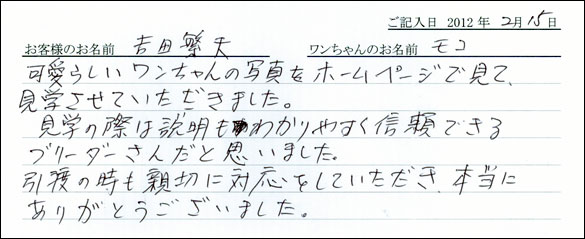 ご記入日 2012年 2月 15日
お客様のお名前 吉田繁夫 ワンちゃんのお名前 モコ
可愛らしいワンちゃんの写真をホームページで見て、
見学させていただきました。
見学の際は説明もわかりやすく信頼できる
ブリーダーさんだと思いました。
引渡の時も親切に対応をしていただき、本当に
ありがとうございました。